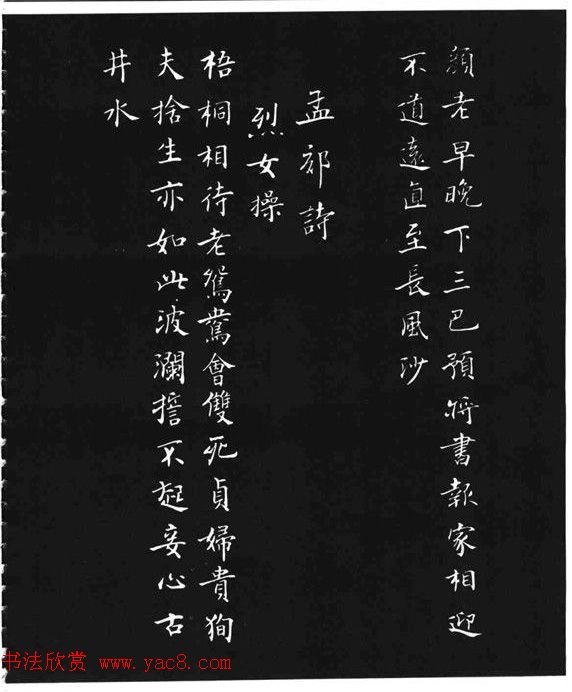 顏老早晚下三巴預將書報家相迎
不道遠直至長風沙
孟郊詩
烈女操
梧桐相待老鴛鴦會雙死貞婦貴狥
夫捨生亦如此波瀾誓不起妾心古
井水
书法欣赏 www.yac8.com